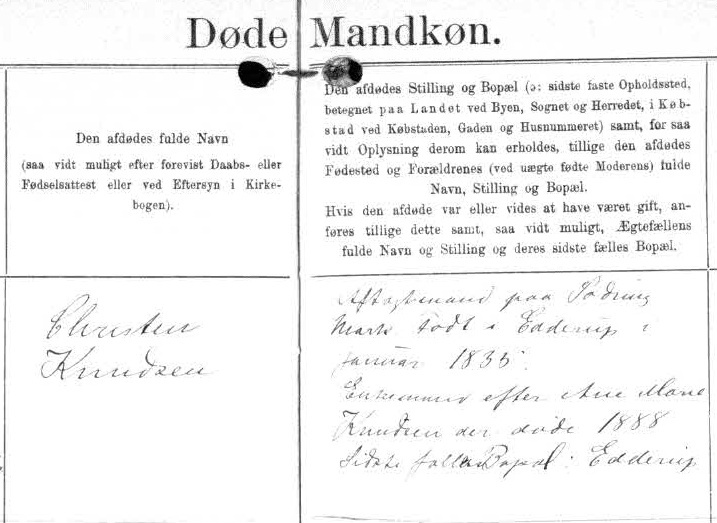 Døde Mandkøn.
Den afdødes fulde Navn
(saa vidt muligt efter forevist Daabs- eller
Fødselsattest eller ved Eftersyn i Kirke-
bogen).
Den afdødes Stilling og Bopæl (ɔ: sidste faste Opholdssted,
betegnet paa Landet ved Byen, Sognet og Herredet, i Køb-
stad ved Købstaden, Gaden og Husnummeret) samt, for saa
vidt Oplysning derom kan erholdes, tillige den afdødes
Fødested og Forældrenes (ved uægte fødte Moderens) fulde
Navn, Stilling og Bopæl.
Hvis den afdøde var eller vides at have været gift, an-
føres tillige dette samt, saa vidt muligt, Ægtefællens
fulde Navn og Stilling og deres sidste fælles Bopæl.
Christen
Knudsen
Aftægtsmand paa
Mark født i Edderup i
Januar 1835.
Enkemand efter Ane Marie
Knudsen der døde 1888
Sidste fælles Bopæl: Edderup